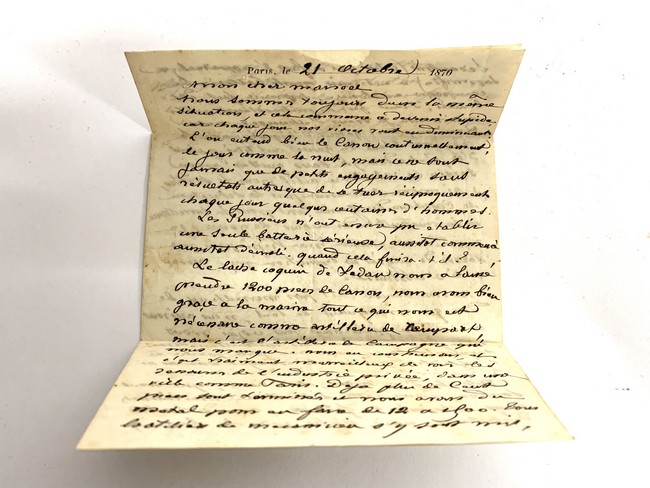 Paris, le 21 Octobre 1870
Mon cher
nous sommes toujours dans la même
situation, et cela commence à devenir stupide
car chaque jour nos vivres vont en diminuant
L'on entend bien le Canon continuellement,
le jour comme la nuit, mais ce ne sont
jamais que de petits engagements sans
résultats autre que de se tuer réciproquement
chaque jour quelques centaines d'hommes.
Les Prussiens n'ont encore pu etablir
une seule batterie sérieuse, aussitot commencé
aussitot démoli. quand cela finira t'il?
Le lache coquin de Sedan nous a laissé
prendre 1200 pieces de Canon, nous avons bien
grace a la marine tout ce qui nous est
nécessaire comme artillerie de rempart
mais c'est l'artillerie de Campagne qui
nous manque nous en construisons, et
c'est vraiment merveilleux de voir les
ressources de l'industrie privée dans une
ville comme Paris. Deja plus de Cent
pieces sont terminées et nous avons du
metal pour en faire de 12 a 1500. Tous
les ateliers de mecanicien s'y sont mis,